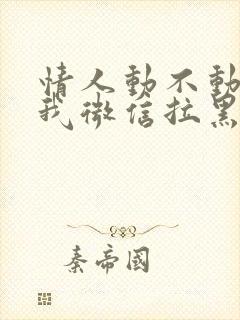 情人動不動
我微信拉黑
秦帝國